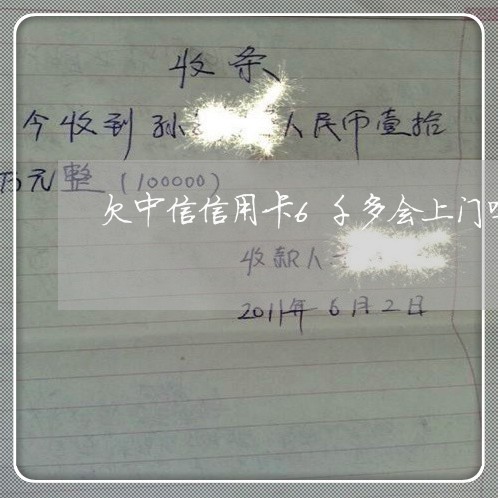 收条
今收到孙 人民币壹拾
万元整(100000)
欠中信信用卡6千多会上门
收款人
2011年6月2日